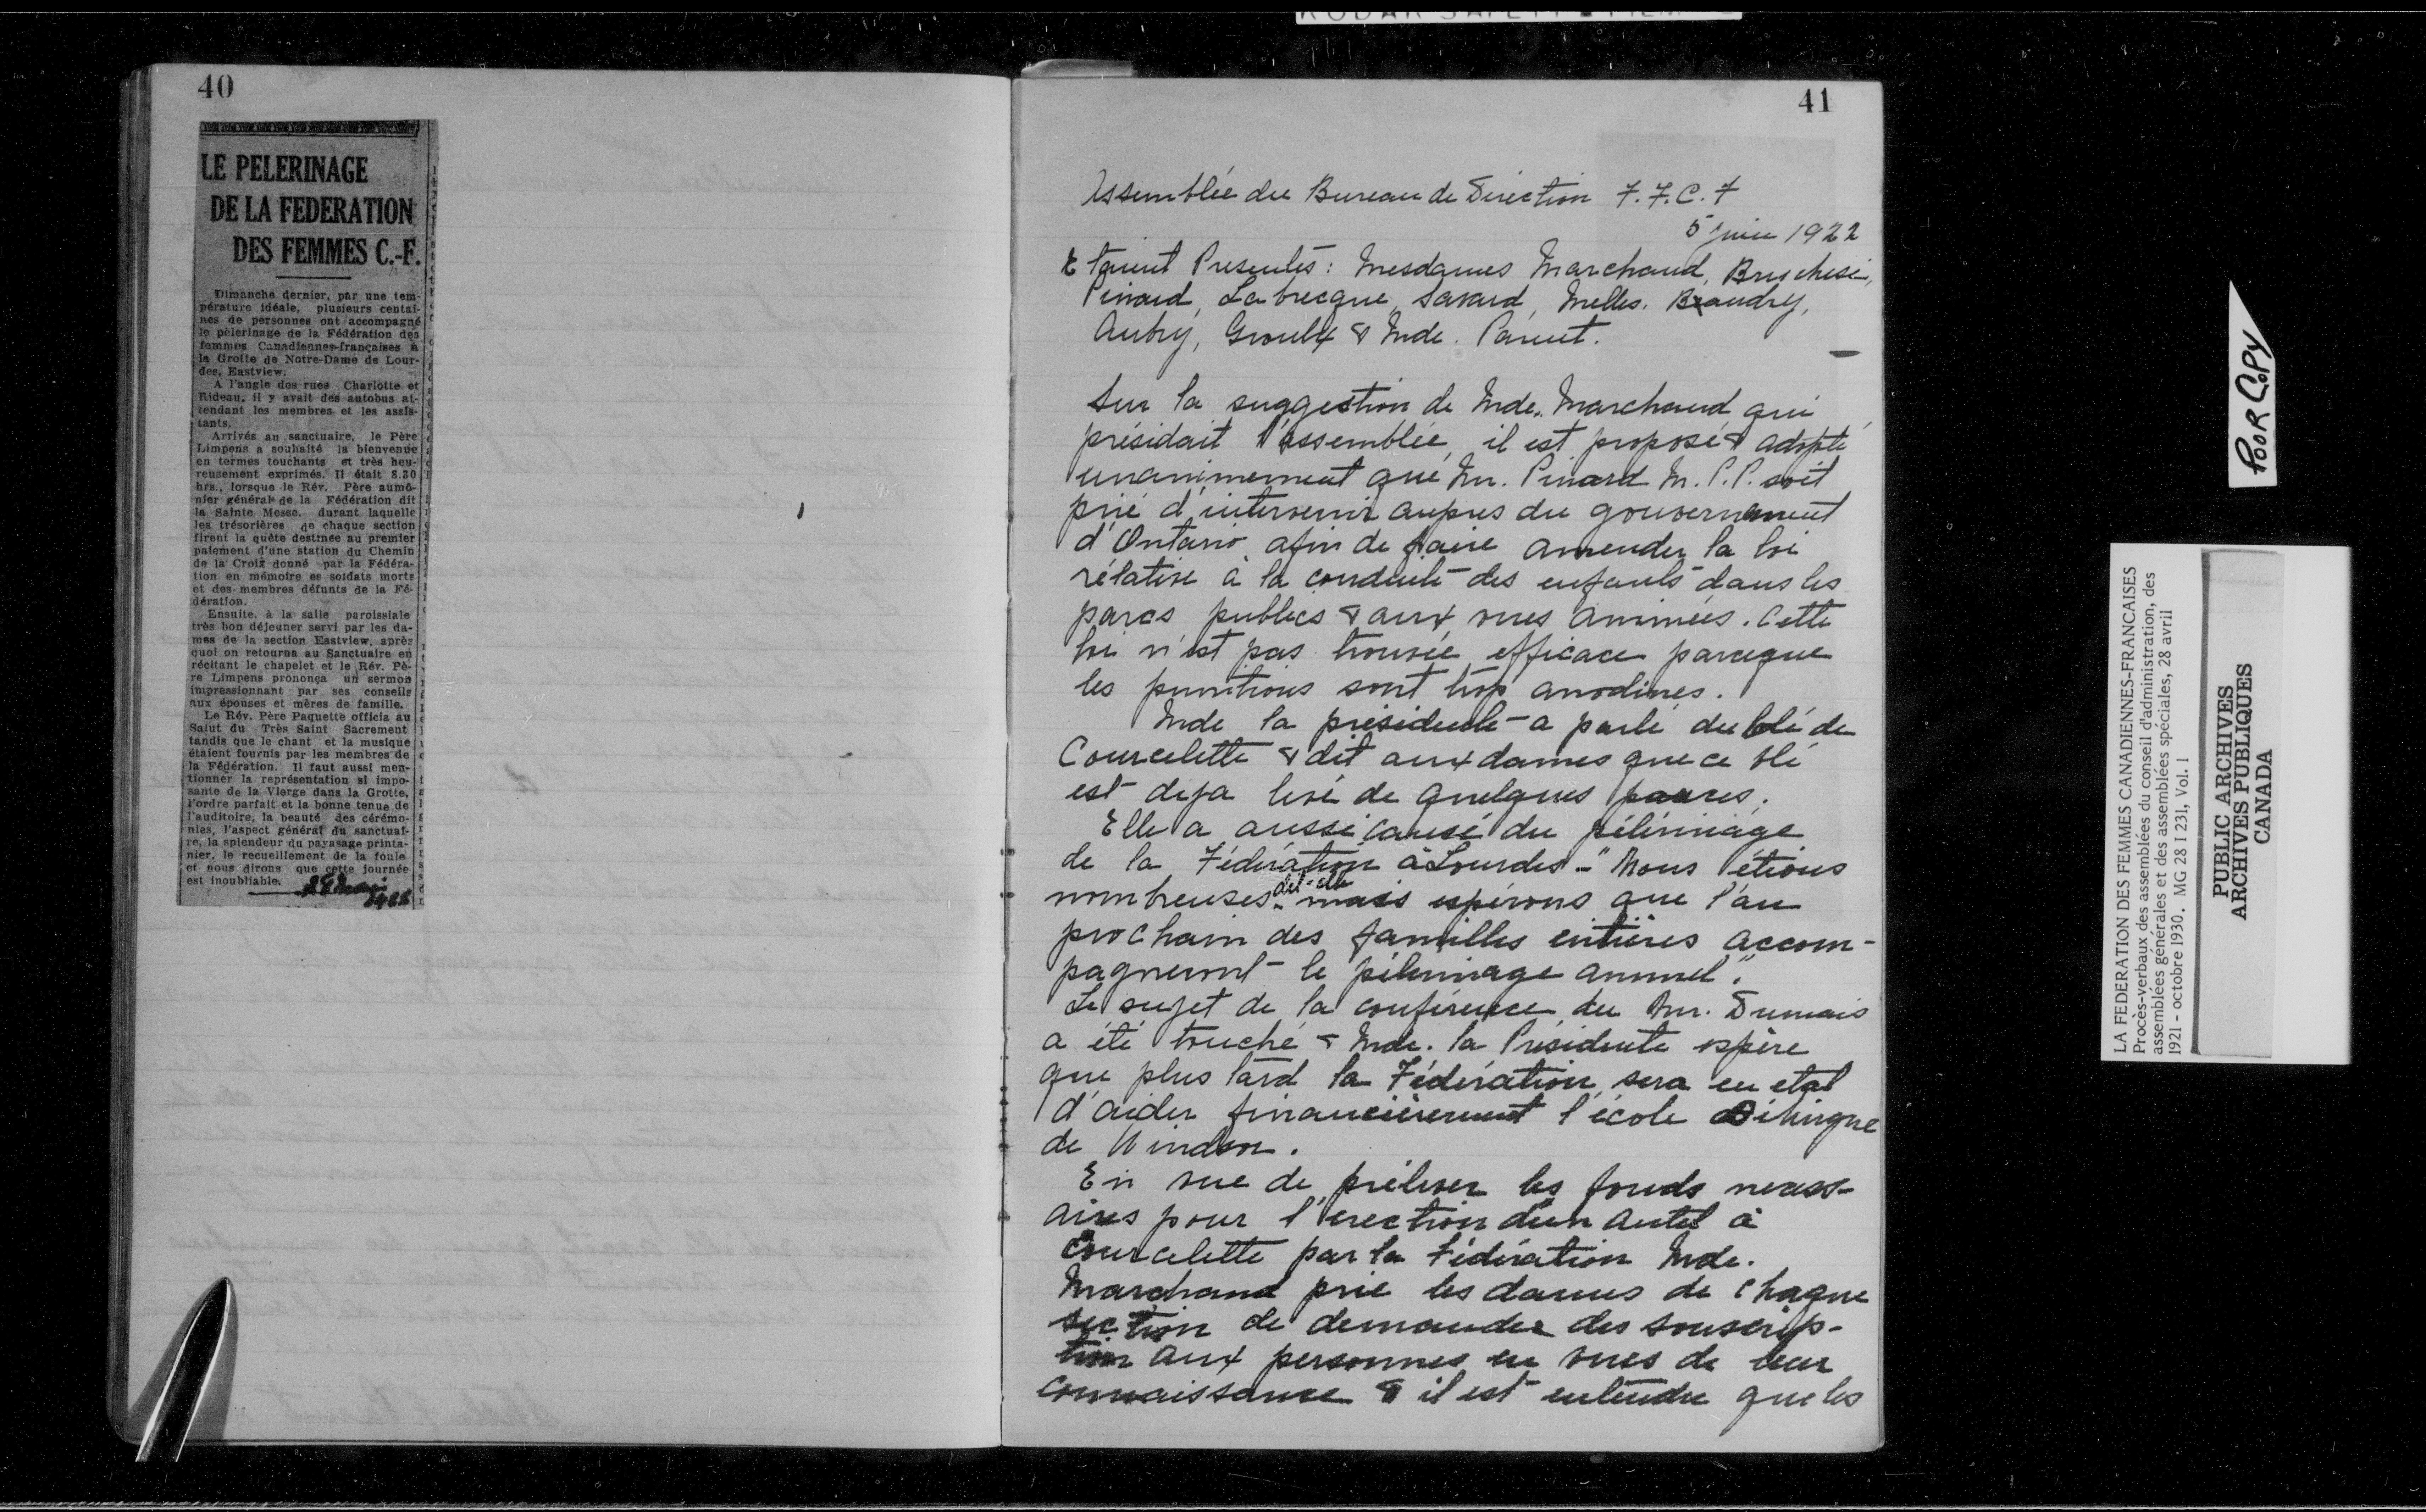 40
LE PELERINAGE
DE LA FEDERATION
DES FEMMES C.-F.
Dimanche dernier, par une tem-
pérature idéale, plusieurs centai-
nes de personnes ont accompagné
le pèlerinage de la Fédération des
femmes Canadiennes-françaises à
la Grotte de Notre-Dame de Lour-
des, Eastview.
A l'angle des rues Charlotte et
Rideau, il y avait des autobus at-
tendant les membres et les assis-
tants.
Arrivés au sanctuaire, le Père
Limpens a souhaité la bienvenue
en termes touchants et très heu-
reusement exprimés. Il était 8.30
hrs., lorsque le Rév. Père aumô-
nier général de la Fédération dit
la Sainte Messe, durant laquelle
les trésorières de chaque section
firent la quête destinée au premier
paiement d'une station du Chemin
de la Croix donné par la Fédéra-
tion en mémoire es soldats morts
et des membres défunts de la Fé-
dération.
Ensuite, à la salle paroissiale
très bon déjeuner servi par les da-
mes de la section Eastview, après
quoi on retourna au Sanctuaire en
récitant le chapelet et le Rév. Pè-
re Limpens prononça un sermon
impressionnant par ses conseils
aux épouses et mères de famille.
Le Rév. Père Paquette officia au
Salut du Très Saint Sacrement
tandis que le chant et la musique
étaient fournis par les membres de
la Fédération. Il faut aussi men-
tionner la représentation si impo-
sante de la Vierge dans la Grotte,
l'ordre parfait et la bonne tenue de
l'auditoire, la beauté des cérémo-
nies, l'aspect général du sanctuai-
re, la splendeur du payasage printa-
nier, le recueillement de la foule
et nous dirons que cette journée
est inoubliable.
mai
41
Assemblée du Bureau de Direction F.F.C.F
5 juin 1922
Etaient Presentes: Mesdames Marchand, Bruchesi,
Pinard, Labrecque, Savard, Melles. Beaudry,
Aubry, Groulx & Mde. Parent.
Sur la suggestion de Mde. Marchand qui
présidait l'assemblée, il est proposé & adopté
unanimement que Mr. Pinard M.P.P. soit
prié d'intervenir aupres du gouvernement
d'Ontario afin de faire amender la loi
rélative à la conduite des enfants dans les
parcs publics & aux vues animées. Cette
loi n'est pas trouvée efficace parceque
les punitions sont trop anodines.
Mde la présidente a parlé du blé de
Courcelette & dit aux dames que ce blé
est deja levé de quelques pouces.
Elle a aussi causé du pélérinage
de la Fédération à Lourdes - "Nous étions
nombreuses dit-elle mais espérons que l'an
prochain des familles entières accom-
pagneront le pélérinage annuel".
Le sujet de la conférence du Mr. Dumais
a été touché & Mde. la Présidente espère
que plus tard la Fédération sera en etat
d'aider financièrement l'école bilingue
de Windsor.
En vue de prélever les fonds necess-
aires pour l'erection d'un autel à
Courcelette par la Fédération Mde.
Marchand prie les dames de chaque
section de demander des souscrip-
tion aux personnes en vues de leur
connaissance & il est entendu que les
KODAK SAFETY FILM
POOR COPY
LA FEDERATION DES FEMMES CANADIENNES-FRANCAISES
Procès-verbaux des assemblées du conseil d'administration, des
assemblées générales et des assemblées spéciales, 28 avril
1921 - octobre 1930. MG 28 I 231, Vol. 1
PUBLIC ARCHIVES
ARCHIVES PUBLIQUES
CANADA